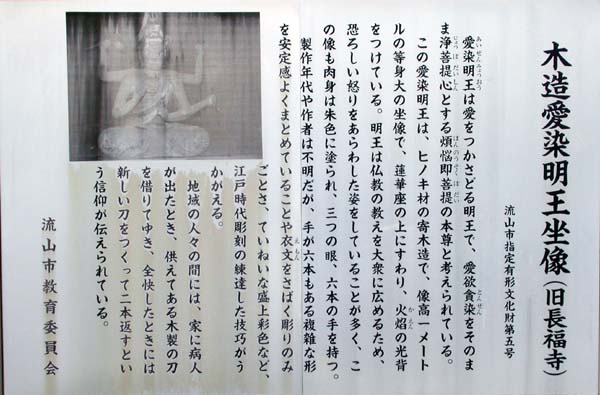 木造愛染明王坐像(旧長福寺)
流山市指定有形文化財第五号
愛染明王は愛をつかさどる明王で、愛欲貪染をそのま
ま浄菩提心とする煩悩即菩提の本尊と考えられている。
この愛染明王は、ヒノキ材の寄木造で、像高一メート
ルの等身大の坐像で、蓮華座の上にすわり、火焰の光背
をつけている。明王は仏教の教えを大衆に広めるため、
恐ろしい怒りをあらわした姿をしていることが多く、こ
の像も肉身は朱色に塗られ、三つの眼、六本の手を持つ。
製作年代や作者は不明だが、手が六本もある複雑な形
を安定感よくまとめていることや衣文をさばく彫りのみ
ごとさ、ていねいな盛上彩色など、
江戸時代彫刻の練達した技巧がう
かがえる。
地域の人々の間には、家に病人
が出たとき、供えてある木製の刀
を借りてゆき、全快したときには
新しい刀をつくって二本返すとい
う信仰が伝えられている。
流山市教育委員会